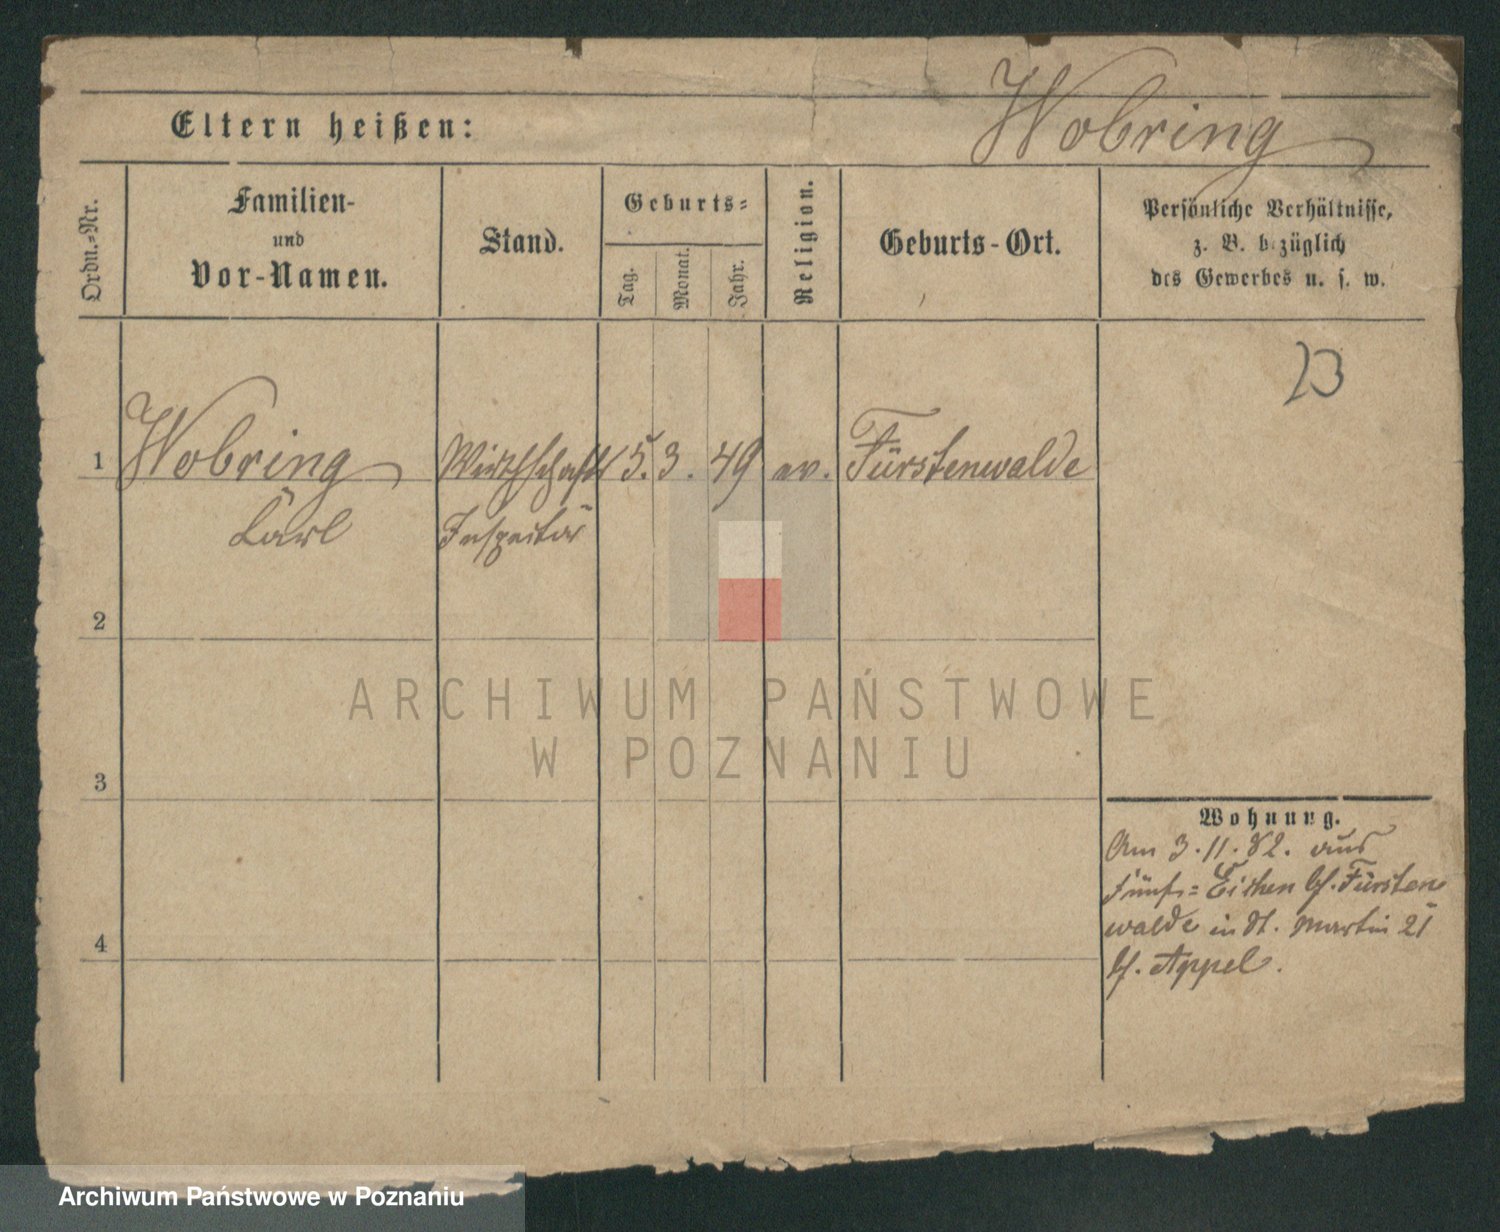 Wobring
Eltern heißen:
Ordn.-Nr.
Familien-
und
Vor-Namen.
Stand.
Geburts-
Tag.
Monat.
Jahr.
Religion.
Geburts-Ort.
Persönliche Verhältnisse,
z. B. bezüglich
des Gewerbes u. s. w.
23
1 Wobring Wirthschafts 15. 3. 49 ev. Fürstenwalde
Carl Inspector
2
3
4
Wohnung.
Am 3.11.82. aus
Fünf-Eichen bf. Fürsten
walde in St. Martin 21
bf. Appel.
ARCHIWUM PAŃSTWOWE
W POZNANIU
Archiwum Państwowe w Poznaniu